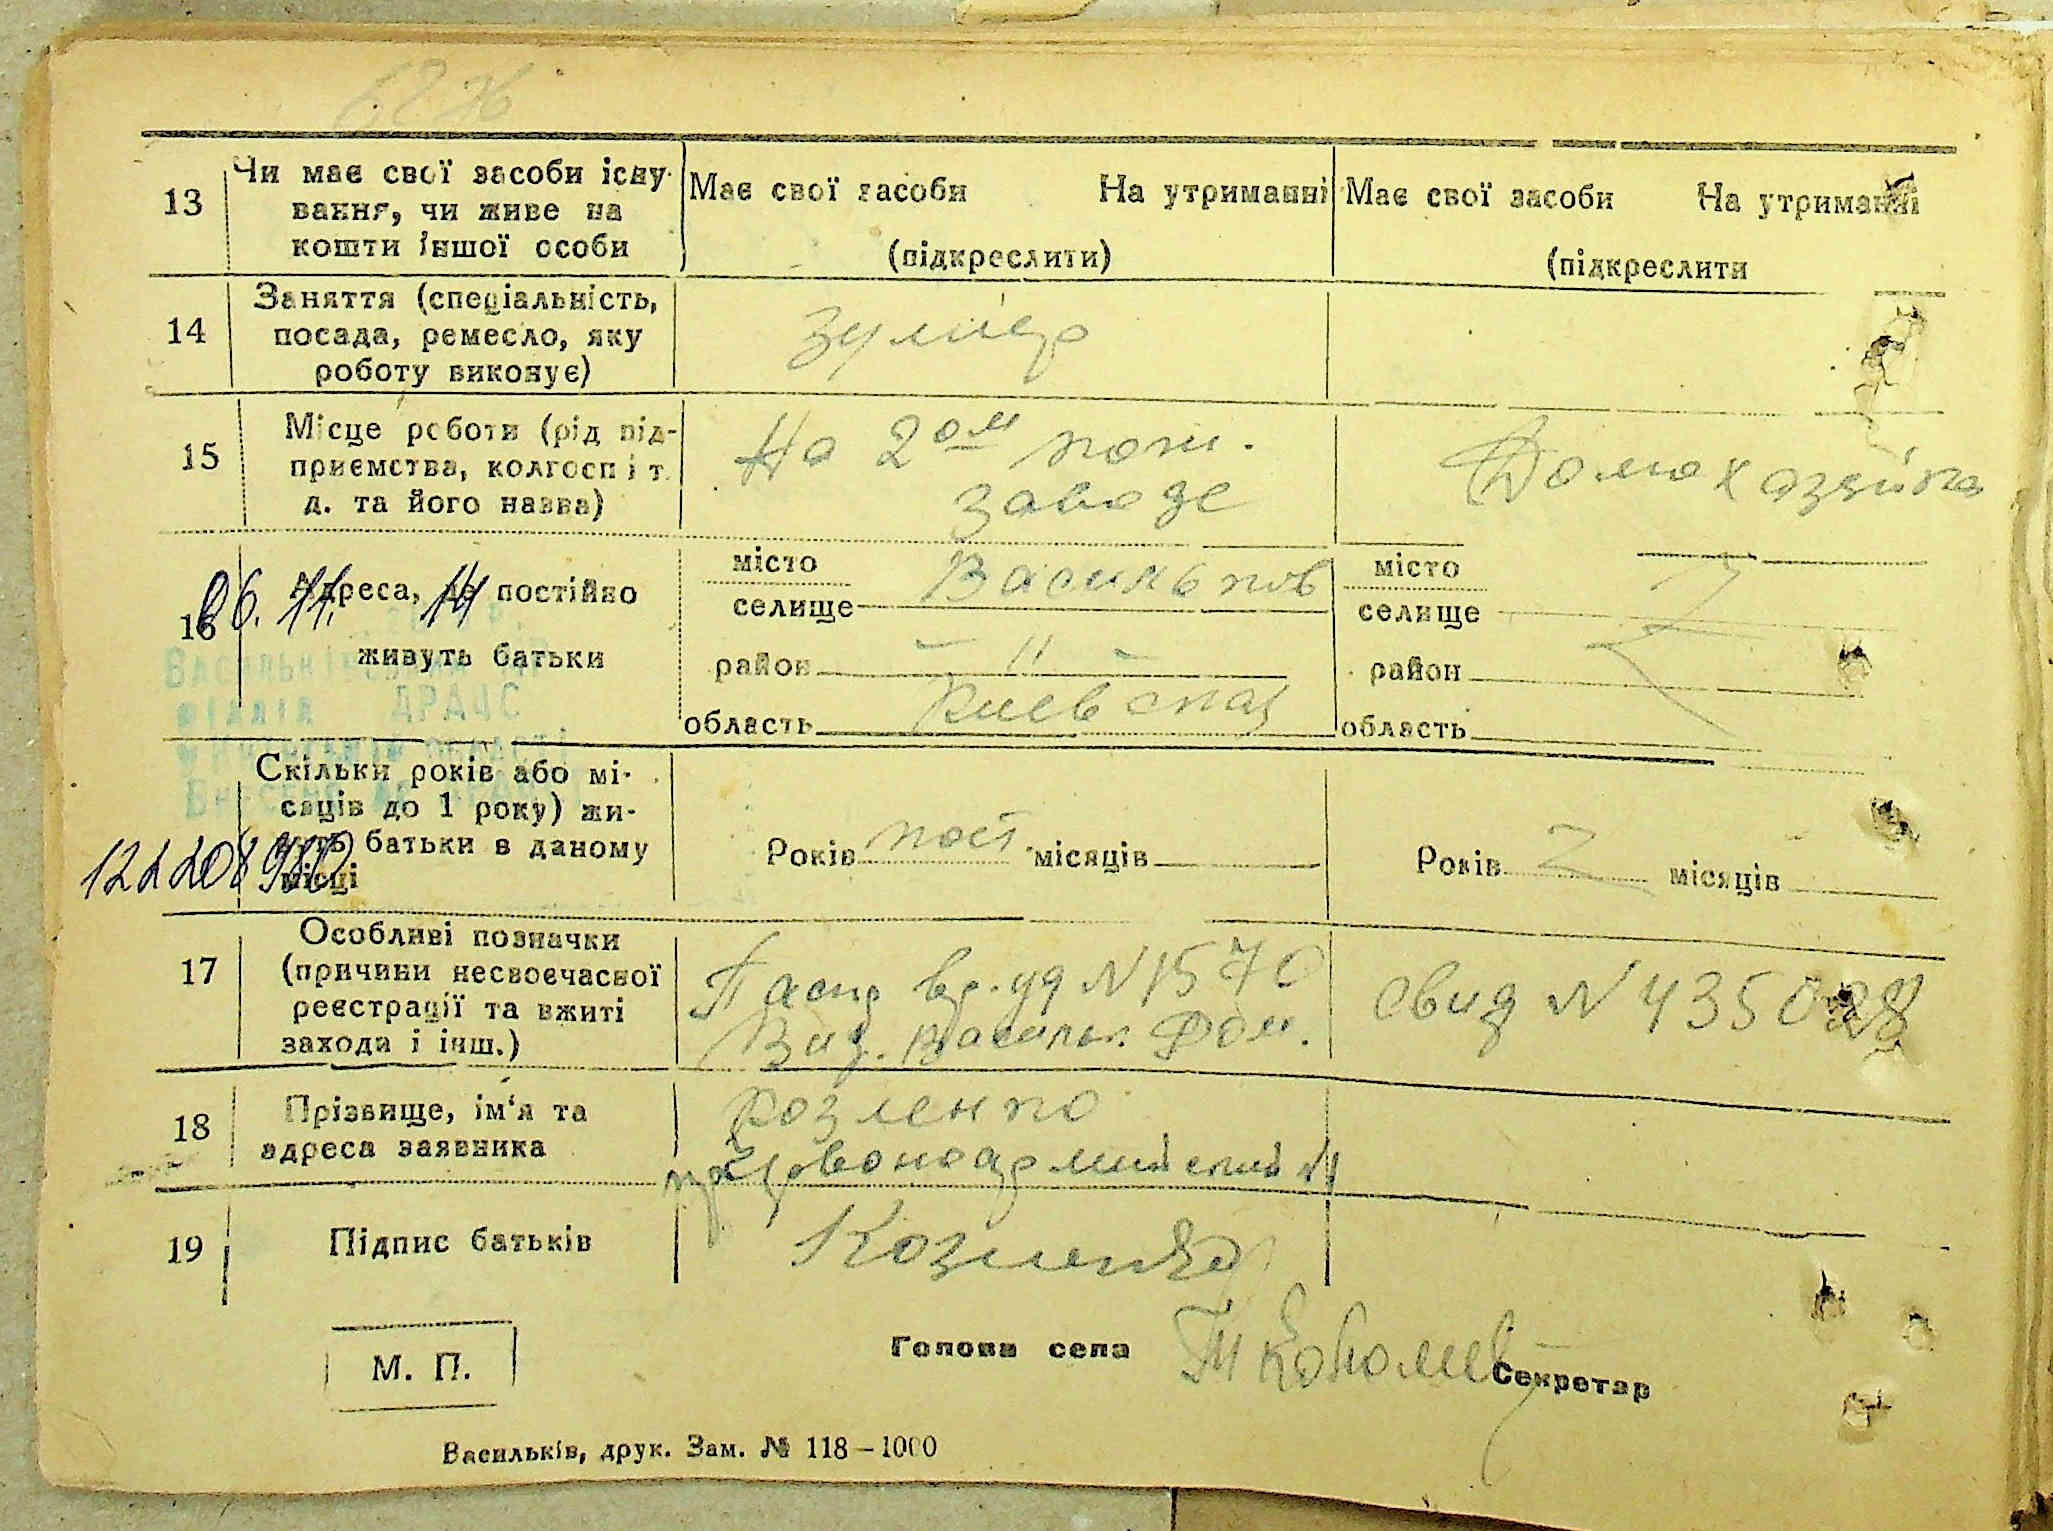 13
Чи має свої засоби існу-
вання, чи живе на
кошти іншої особи
Має свої засоби На утриманні
(підкреслити)
Має свої засоби На утриманні
(підкреслити
14
Заняття (спеціальність,
посада, ремесло, яку
роботу виконує)
15
Місце роботи (рід під-
приємства, колгосп і т.
д. та його назва)
На 2ом кож.
заводе
Домохазяйка
16
Адреса, де постійно
живуть батьки
06. 11. 14
Васильківський
філія ДРАЦС
місто
селище Васильков
район — " —
область Киевская
місто
селище
район
область
Скільки років або мі-
сяців до 1 року) жи-
вуть батьки в даному
місці
Років пост місяців
Років місяців
17
Особливі позначки
(причини несвоєчасної
реєстрації та вжиті
заходи і інш.)
Пасп вр. уд N 1570
Вид. Васильк.
Свид N 435028
18
Прізвище, ім'я та
адреса заявника
Козленко
червоноармийский
19
Підпис батьків
Козленко
М. П.
Голова села
Секретар
Васильків, друк. Зам. № 118-1000